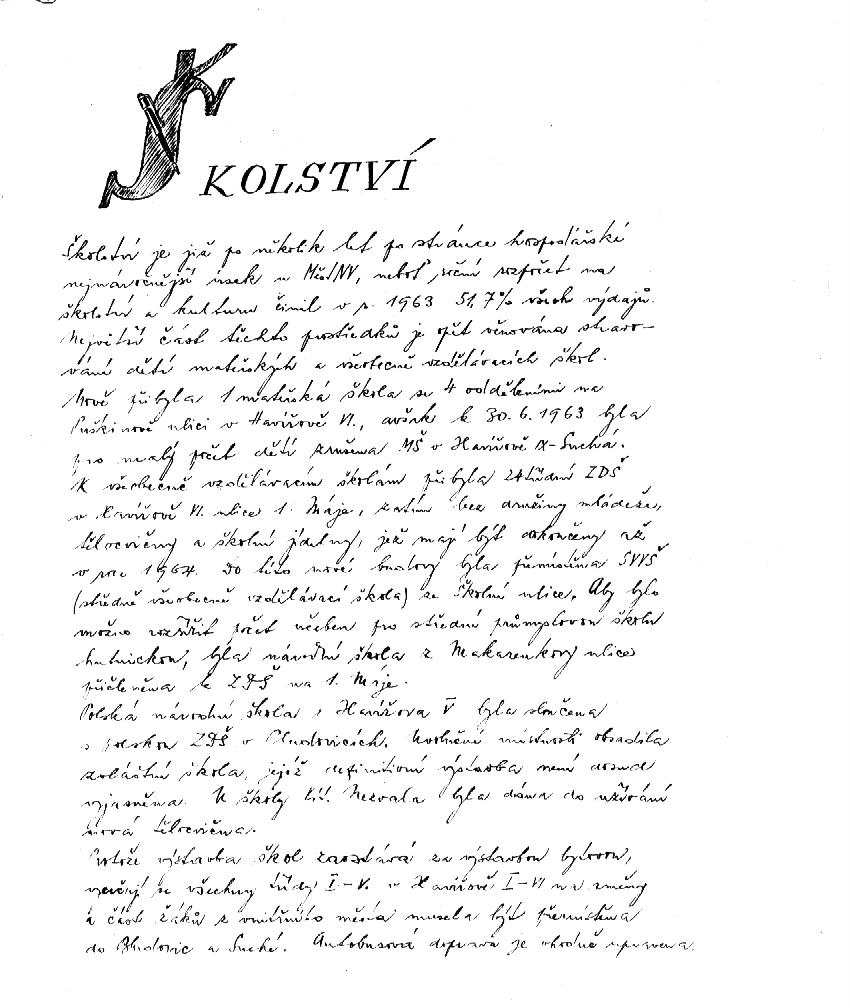 ŠKOLSTVÍ
Školství je již po několik let po stránce hospodářské
nejnáročnější úsek u MěstNV, neboť roční rozpočet na
školství a kulturu činil v r. 1963 51,7% všech výdajů.
Největší část těchto prostředků je opět věnována stravo-
vání dětí mateřských a všeobecně vzdělávacích škol.
Nově přibyla 1 mateřská škola se 4 odděleními na
Puškinově ulici v Havířově VI., avšak k 30.6.1963 byla
pro malý počet dětí zrušena MŠ v Havířově IX-Suchá.
K všeobecně vzdělávacím školám přibyla 24třídní ZDŠ
v Havířově VI. ulice 1. Máje, zatím bez družiny mládeže,
tělocvičny a školní jídelny, jež mají být dokončeny až
v roce 1964. Do této nové budovy byla přemístěna SVVŠ
(středně všeobecně vzdělávací škola) ze Školní ulice. Aby bylo
možno rozšířit počet učeben pro střední průmyslovou školu
hutnickou, byla národní škola z Makarenkovy ulice
přičleněna k ZDŠ na 1. Máje.
Polská národní škola z Havířova V byla sloučena
s polskou ZDŠ v Bludovicích. Uvolněné místnosti obsadila
zvláštní škola, jejíž definitivní výstavba není dosud
vyjasněna. U školy Vít. Nezvala byla dána do užívání
nová tělocvična.
Protože výstavba škol zaostává za výstavbou bytovou,
vyučují se všechny třídy I-V. v Havířově I-VI na směny
a část žáků z vnitřního města musela být přemístěna
do Bludovic a Suché. Autobusová doprava je vhodně upravena.